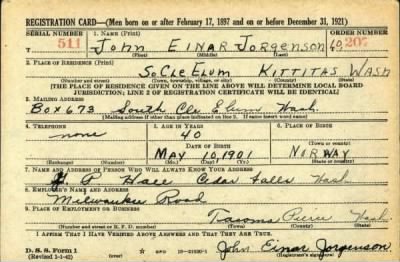 REGISTRATION CARD—(Men born on or after February 17, 1897 and on or before December 31, 1921)
SERIAL NUMBER 1. NAME (Print) ORDER NUMBER
T 511 John Einar Jorgenson 10,205
(First) (Middle) (Last)
2. PLACE OF RESIDENCE (Print)
So Cle Elum Kittitas Wash
(Number and street) (Town, township, village, or city) (County) (State)
[THE PLACE OF RESIDENCE GIVEN ON THE LINE ABOVE WILL DETERMINE LOCAL BOARD
JURISDICTION; LINE 2 OF REGISTRATION CERTIFICATE WILL BE IDENTICAL]
3. MAILING ADDRESS
Box 673 South Cle Elum Wash.
[Mailing address if other than place indicated on line 2. If same insert word same]
4. TELEPHONE 5. AGE IN YEARS 6. PLACE OF BIRTH
none 40
(Town or county)
DATE OF BIRTH
May 10, 1901 Norway
(Exchange) (Number) (Mo.) (Day) (Yr.) (State or country)
7. NAME AND ADDRESS OF PERSON WHO WILL ALWAYS KNOW YOUR ADDRESS
Hall Cedar Falls Wash.
8. EMPLOYER'S NAME AND ADDRESS
Milwaukee Road
9. PLACE OF EMPLOYMENT OR BUSINESS
Tacoma Pierce Wash
(Number and street or R. F. D. number) (Town) (County) (State)
I AFFIRM THAT I HAVE VERIFIED ABOVE ANSWERS AND THAT THEY ARE TRUE.
D. S. S. Form 1
(Revised 1-1-42) GPO 16—21630-1
John Einar Jorgenson
(Registrant's signature)